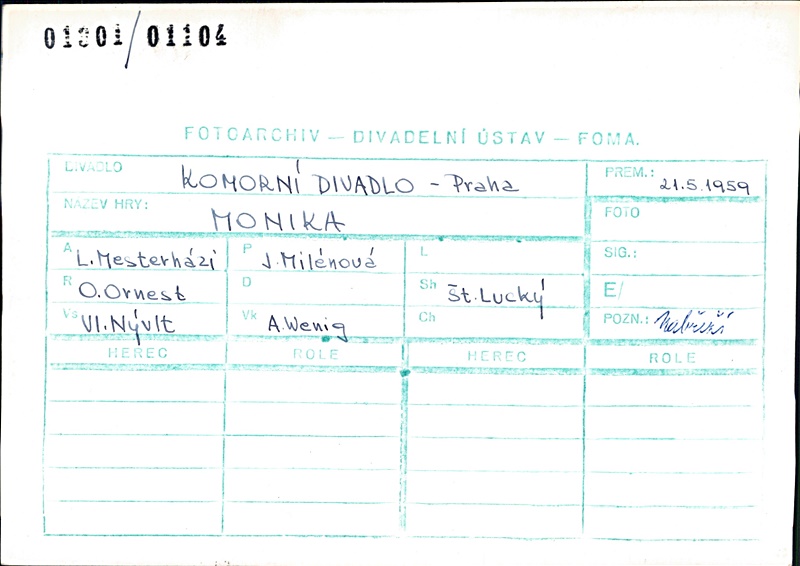 01801/01104
FOTOARCHIV — DIVADELNÍ ÚSTAV — FOMA.
DIVADLO KOMORNÍ DIVADLO - Praha
PREM.: 21.5.1959
NAZEV HRY: MONIKA
FOTO
A L. Mesterházi
P J. Milénová
L
SIG.:
R O. Ornest
D
Sh Št. Lucký
E/
Vs Vl. Nývlt
Vk A. Wenig
Ch
POZN.:
HEREC ROLE HEREC ROLE